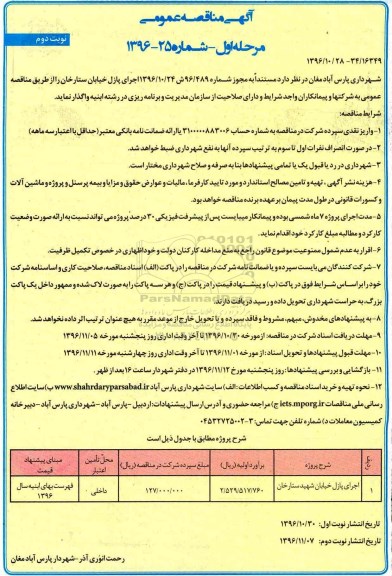 آگهی مناقصه عمومی
نوبت دوم
مرحله اول - شماره ۲۵-۱۳۹۶
۳۴/۱۶۳۴۹- ۱۳۹۶/۱۰/۲۸
شهرداری پارس آباد مغان در نظر دارد مستنداً به مجوز شماره ۹۶/۴۸۹/ش ۱۳۹۶/۱۰/۲۴ اجرای پازل خیابان ستارخان را از طریق مناقصه
عمومی به شرکتها و پیمانکاران واجد شرایط و دارای صلاحیت از سازمان مدیریت و برنامه ریزی در رشته ابنیه واگذار نماید.
شرایط مناقصه:
۱- واریز نقدی سپرده شرکت در مناقصه به شماره حساب ۳۱۰۰۰۰۰۸۸۳۰۰۶ یا ارائه ضمانت نامه بانکی معتبر (حداقل با اعتبار سه ماهه)
۲- در صورت انصراف نفرات اول تا سوم به ترتیب سپرده آنها به نفع شهرداری ضبط خواهد شد.
۳- شهرداری در رد یا قبول یک یا تمامی پیشنهادها بنا به صرفه و صلاح شهرداری مختار است.
۴- هزینه نشر آگهی، تهیه و تامین مصالح استاندارد و مورد تایید کارفرما، مالیات و عوارض حقوق و مزایا و بیمه پرسنل و پروژه و ماشین آلات
و کسورات قانونی در طول مدت پیمان بر عهده برنده مناقصه خواهد بود.
۵- مدت اجرای پروژه ۷ ماه شمسی بوده و پیمانکار میبایست پس از پیشرفت فیزیکی ۳۰ درصد پروژه می تواند نسبت به ارائه صورت وضعیت
کارکرد و مطالبه مبلغ کارکرد خود اقدام نماید.
۶- اقرار به عدم شمول ممنوعیت موضوع قانون راجع به منع مداخله کارکنان دولت و خوداظهاری در خصوص تکمیل ظرفیت.
۷- شرکت کنندگان می بایست سپرده و یا ضمانت نامه شرکت در مناقصه را در پاکت (الف) اسناد مناقصه، صلاحیت کاری و اساسنامه شرکت
خود را بر اساس شرایط فوق در پاکت (ب) و پیشنهاد قیمت را در پاکت (ج) و هر سه پاکت را به صورت لاک شده و ممهور داخل یک پاکت
بزرگ، به حراست شهرداری تحویل داده و رسید دریافت دارند.
۸- به پیشنهادهای مخدوش، مبهم، مشروط و فاقد سپرده و یا تحویل خارج از موعد مقرر به هیچ عنوان ترتیب اثر داده نخواهد شد.
۹- مهلت دریافت اسناد شرکت در مناقصه: از مورخه ۱۳۹۶/۱۰/۳۰ تا آخر وقت اداری روز پنجشنبه مورخه ۱۳۹۶/۱۱/۰۵
۱۰- مهلت قبول پیشنهادها و تحویل اسناد: از مورخه ۱۳۹۶/۱۱/۰۱ تا آخر وقت اداری روز چهارشنبه مورخه ۱۳۹۶/۱۱/۱۱
۱۱- بازگشایی و بررسی پیشنهادها: روز پنجشنبه مورخ ۱۳۹۶/۱۱/۱۲ در دفتر شهردار ساعت ۱۶ بعد از ظهر.
۱۲- نحوه تهیه و خرید اسناد مناقصه و کسب اطلاعات: الف) سایت شهرداری پارس آباد www.shahrdaryparsabad.ir ب) سایت اطلاع
رسانی ملی مناقصات iets.mporg.ir ج) مراجعه حضوری و آدرس ارسال پیشنهادات: اردبیل - پارس آباد - شهرداری پارس آباد - دبیرخانه
کمیسیون معاملات د) شماره تلفن جهت تماس: ۳-۰۴۵۳۲۷۲۵۰۰۲
شرح پروژه مطابق با جدول ذیل است
ردیف شرح پروژه برآورد اولیه (ریال) مبلغ سپرده شرکت در مناقصه (ریال) محل تأمین اعتبار مبنای پیشنهاد قیمت
۱ اجرای پازل خیابان شهید ستارخان ۲/۵۲۹/۵۱۷/۷۶۰ ۱۲۷/۰۰۰/۰۰۰ داخلی فهرست بهای ابنیه سال ۱۳۹۶
تاریخ انتشار نوبت اول: ۱۳۹۶/۱۰/۳۰
تاریخ انتشار نوبت دوم: ۱۳۹۶/۱۱/۰۷
رحمت انوری آذر - شهردار پارس آباد مغان